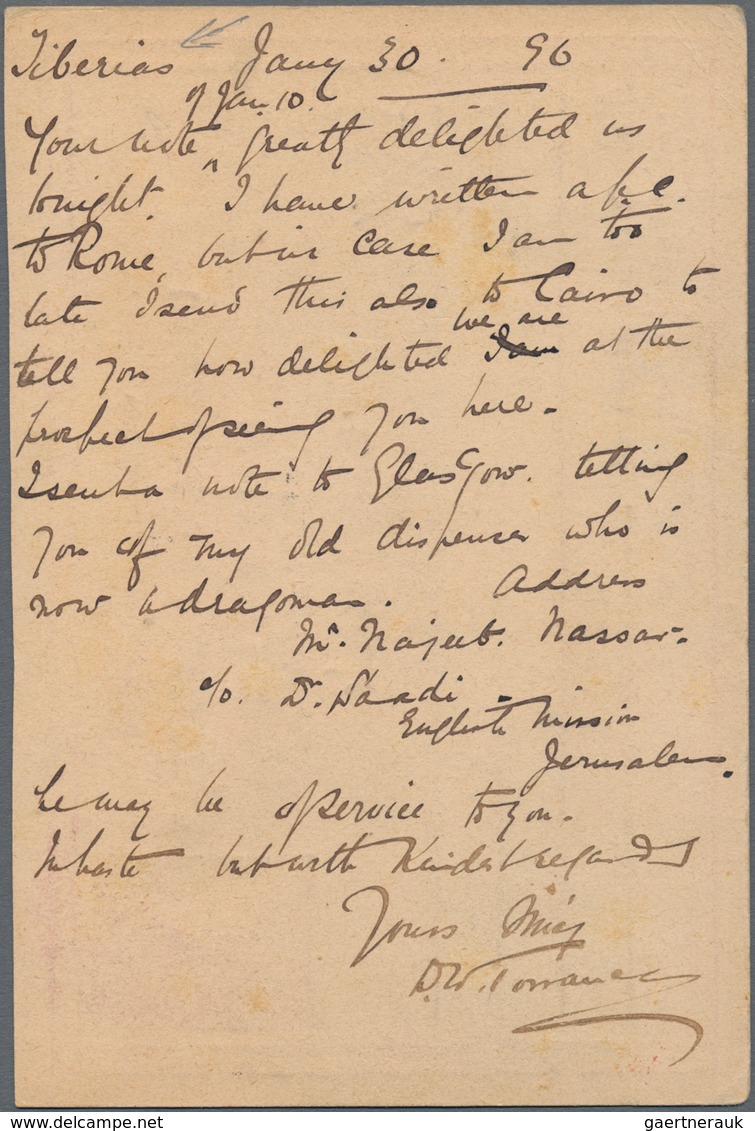 Tiberias Jany 30. 96
of Jan. 10.
Your note greatly delighted us
tonight. I have written a p.c.
to Rome, but in case I am too
late I send this also to Cairo to
we are
tell you how delighted I am at the
prospect of seeing you here.
I sent a note to Glasgow. telling
you of my old dispenser who is
now a dragoman. Address
Mr. Najeeb. Nassar.
c/o. Dr. Saadi.
English Mission
Jerusalem.
he may be of service to you.
In haste but with kindest regards
Yours
D.W. Torrance
gaertnerauk